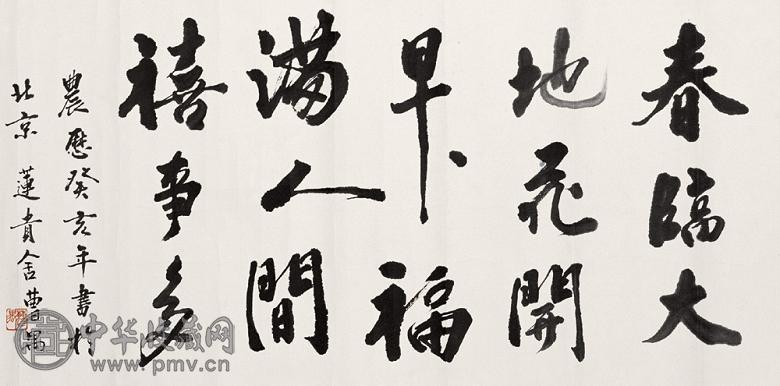 春臨大
地花開
早、福
滿人間
禧事多
農歷癸亥年書於
北京 蓮貴舍曹禺
中华收藏网
www.pmv.cn